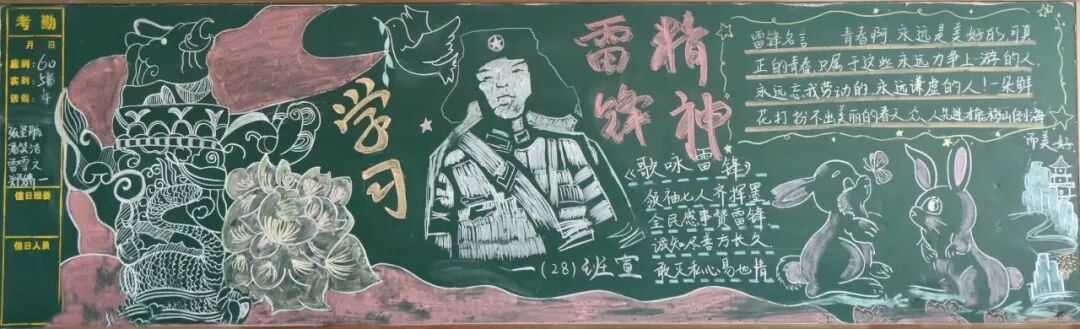 考勤
月 日
应到:60
实到:
请假:
值日班委
值日人员
学习
雷锋
精神
一(28)班宣
《歌咏雷锋》
领袖七人齐挥墨
全民感事赞雷锋
诚知尽善方长久
敢灭私心易也情
雷锋名言 青春啊 永远是美好的 可真
正的青春 只属于这些永远力争上游的人
永远忘我劳动的 永远谦虚的人!一朵鲜
花打扮不出美丽的春天
而美好